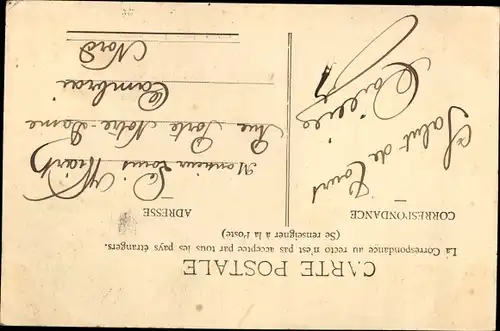 CARTE POSTALE
La Correspondance au recto n'est pas acceptée par tous les pays étrangers.
(Se renseigner à la Poste)
CORRESPONDANCE
Salut de Tours
ADRESSE
Monsieur Louis
Rue Porte Notre-Dame
Cambrai
Nord